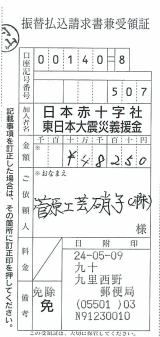 振替払込請求書兼受領証
口座記号番号
00140=8
507
加入者名
日本赤十字社
東日本大震災義援金
金額
千百十万千百十円
¥48250
ご依頼人
*おなまえ
菅原工芸硝子(株)
様
料金
日附印
24-05-09
九十
九里西野
郵便局
(05501)03
N91230010
備考
免除
免
記載事項を訂正した場合は、その箇所に訂正印を押してください。
この受領証は、大切に保管してください。